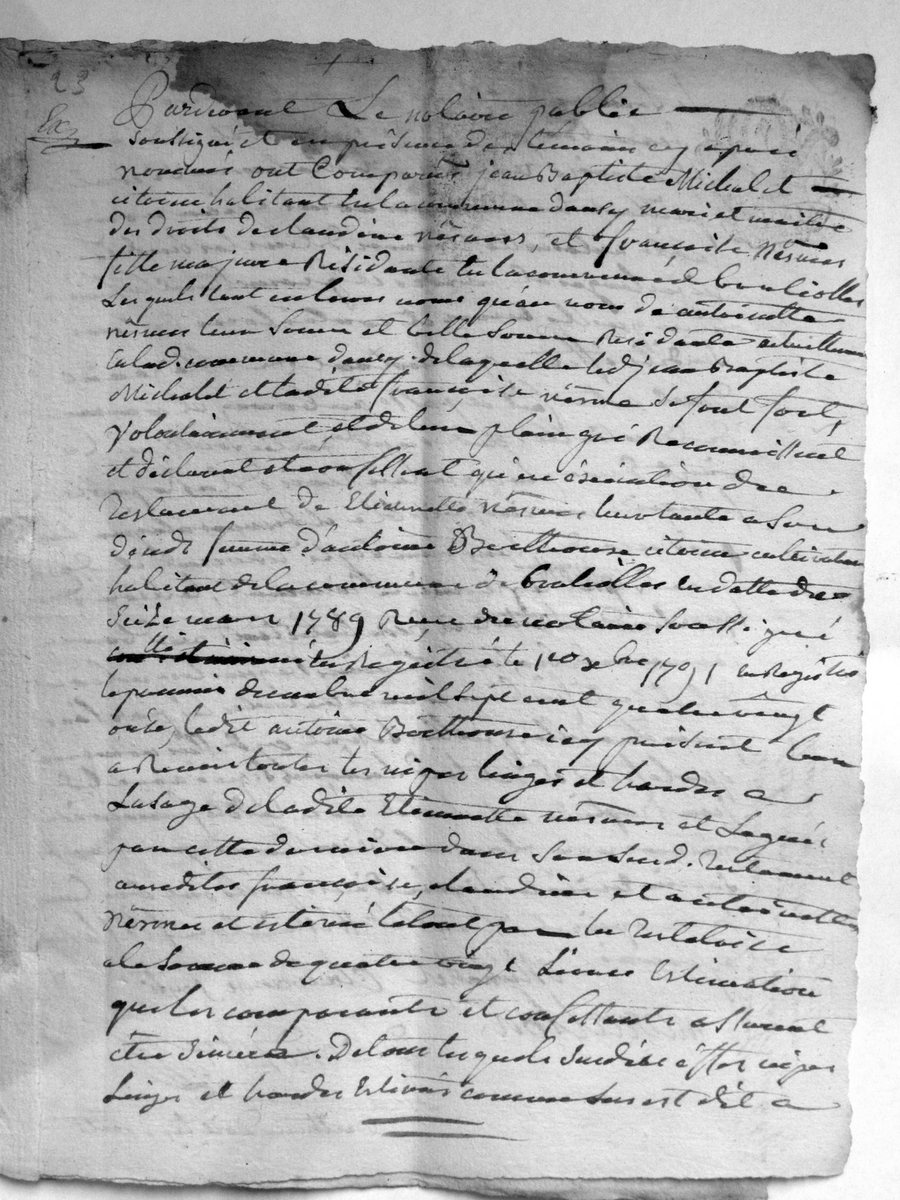 23
Ex
Pardevant Le notaire public
Soussigné et en présence des temoins cy après
nommés ont Comparus jean Baptiste Michalet
citoien habitant en la commune dancy mari et maitre
des droits de claudine nésmes, et françoise Nésmes
fille majeure Résidante en la commune de
Lesquels tant en leurs noms qu'au nom de antoinette
nésmes leur Soeur et belle Soeur Residante
en lad. commune dancy, de laquelle led jean Baptiste
Michalet et ladite françoise nésme se font fort,
volontairement et de leur plein gré Reconnaissent
et déclarent et confessent qu'en éxécution du
testament de Etiennette nésmes, vivante a Son
décéds femme d'antoine Berthouse citoien cultivateur
habitant de la commune de en datte du
Seize mars 1789 Reçu du notaire Soussigné
enregistré le 1er xbre 1791 enregistré
le premier decembre mil sept cent quatre vingt
onze, ledit antoine Berthouse icy présent leur
a Remis toutes les nipes linges et hardes a
Lusage de ladite Etiennette nésmes et Legués
par cette derniere dans Son Susd. testament
auxdites françoise, claudine et antoinette
nésmes et estimé le tout par la testatrice
a la Somme de quatre vingt Livres Estimation
que les comparants et confessants assurent
être Sincére. De tous lesquels Susdits effets nipes
Linges et hardes Estimés comme sus est dit a